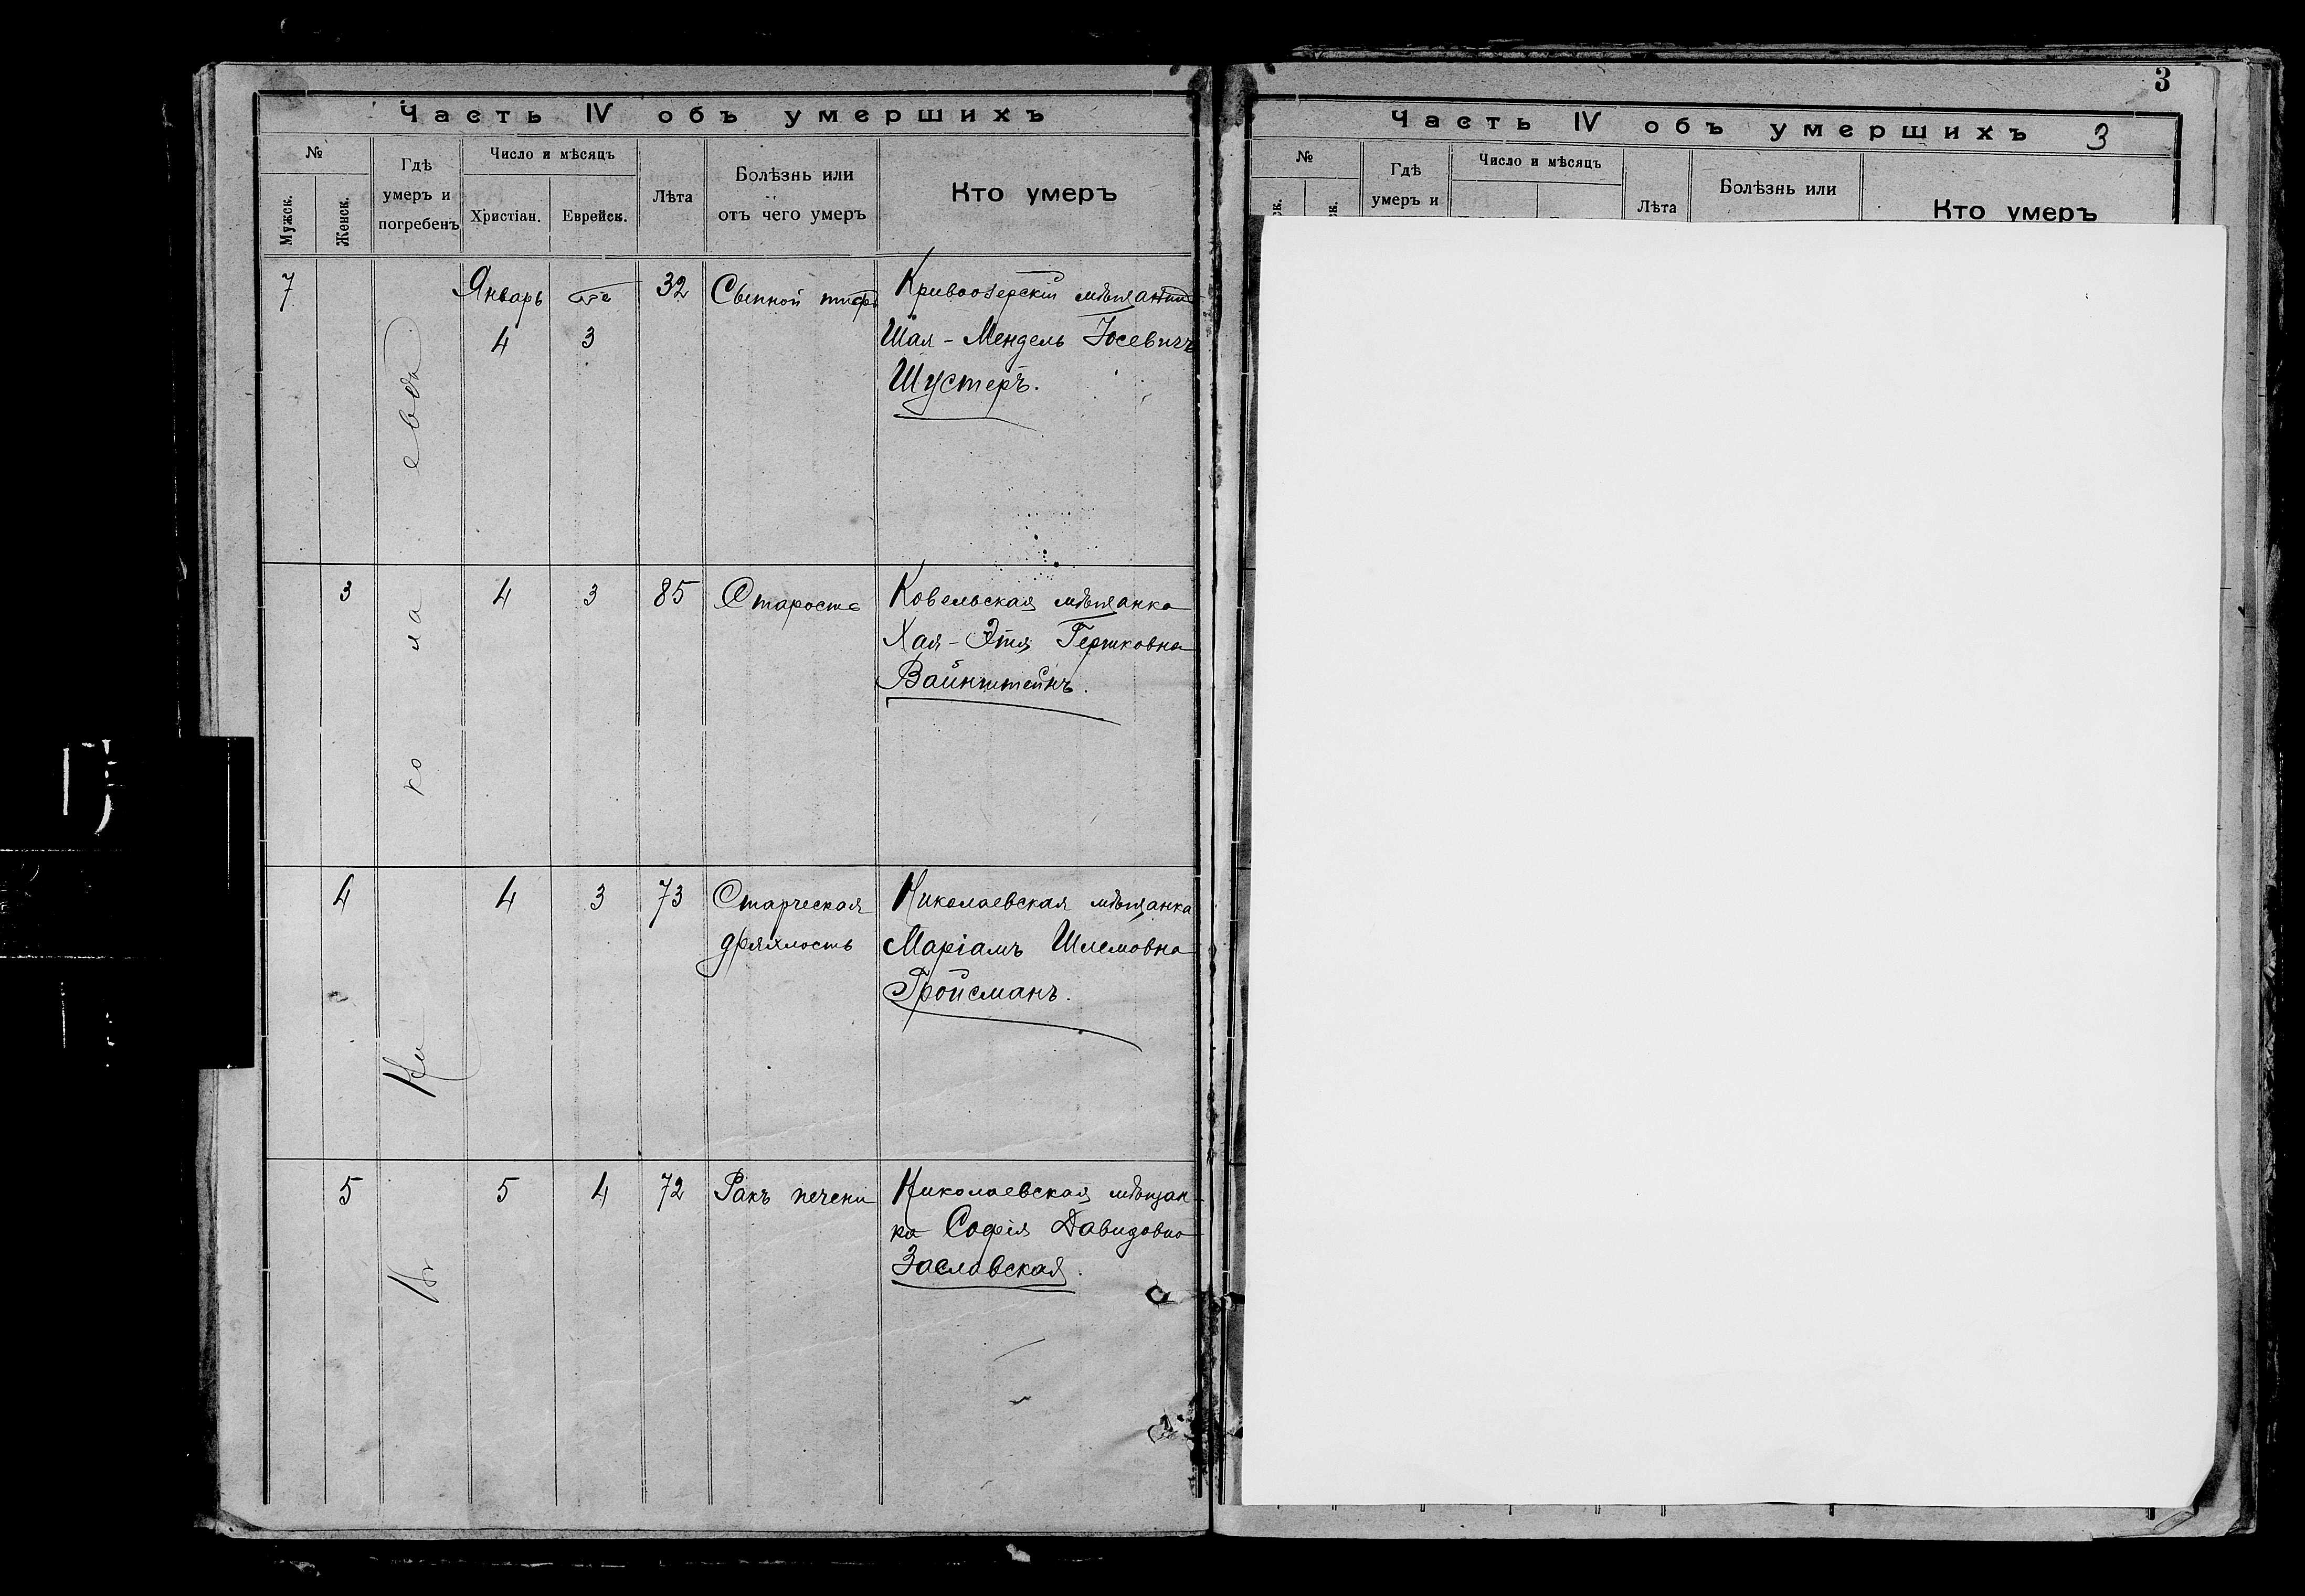 Часть IV объ умершихъ
№
Мужск.
Женск.
Гдѣ
умеръ и
погребенъ
Число и мѣсяцъ
Христіан.
Еврейск.
Лѣта
Болѣзнь или
отъ чего умеръ
Кто умеръ
Въ Николаевѣ
7 Январь 32 Сыпной тифъ Кривоозерскій мѣщанинъ
4 3 Шая-Мендель Іосевичъ
Шустеръ.
3 4 3 85 Старость Ковельская мѣщанка
Хая-Этя Гершковна
Вайнштейнъ.
4 4 3 73 Старческая Николаевская мѣщанка
дряхлость Маріамъ Шлемовна
Гройсманъ.
5 5 4 72 Ракъ печени Николаевская мѣщан-
ка Софія Давидовна
Заславская.
3
Часть IV объ умершихъ 3
№
Гдѣ
умеръ и
Число и мѣсяцъ
Лѣта
Болѣзнь или
Кто умеръ